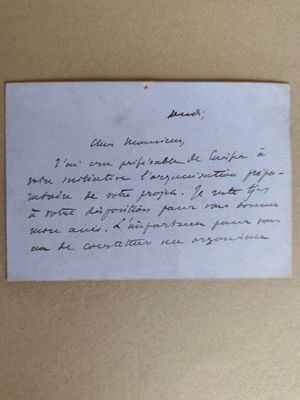 Lundi,
Cher Monsieur,
J'ai cru préférable de laisser à
votre initiative l'organisation prépa-
ratoire de votre projet. Je reste tjs
à votre disposition pour vous donner
mon avis. L'important pour vous
de constituer un organisme